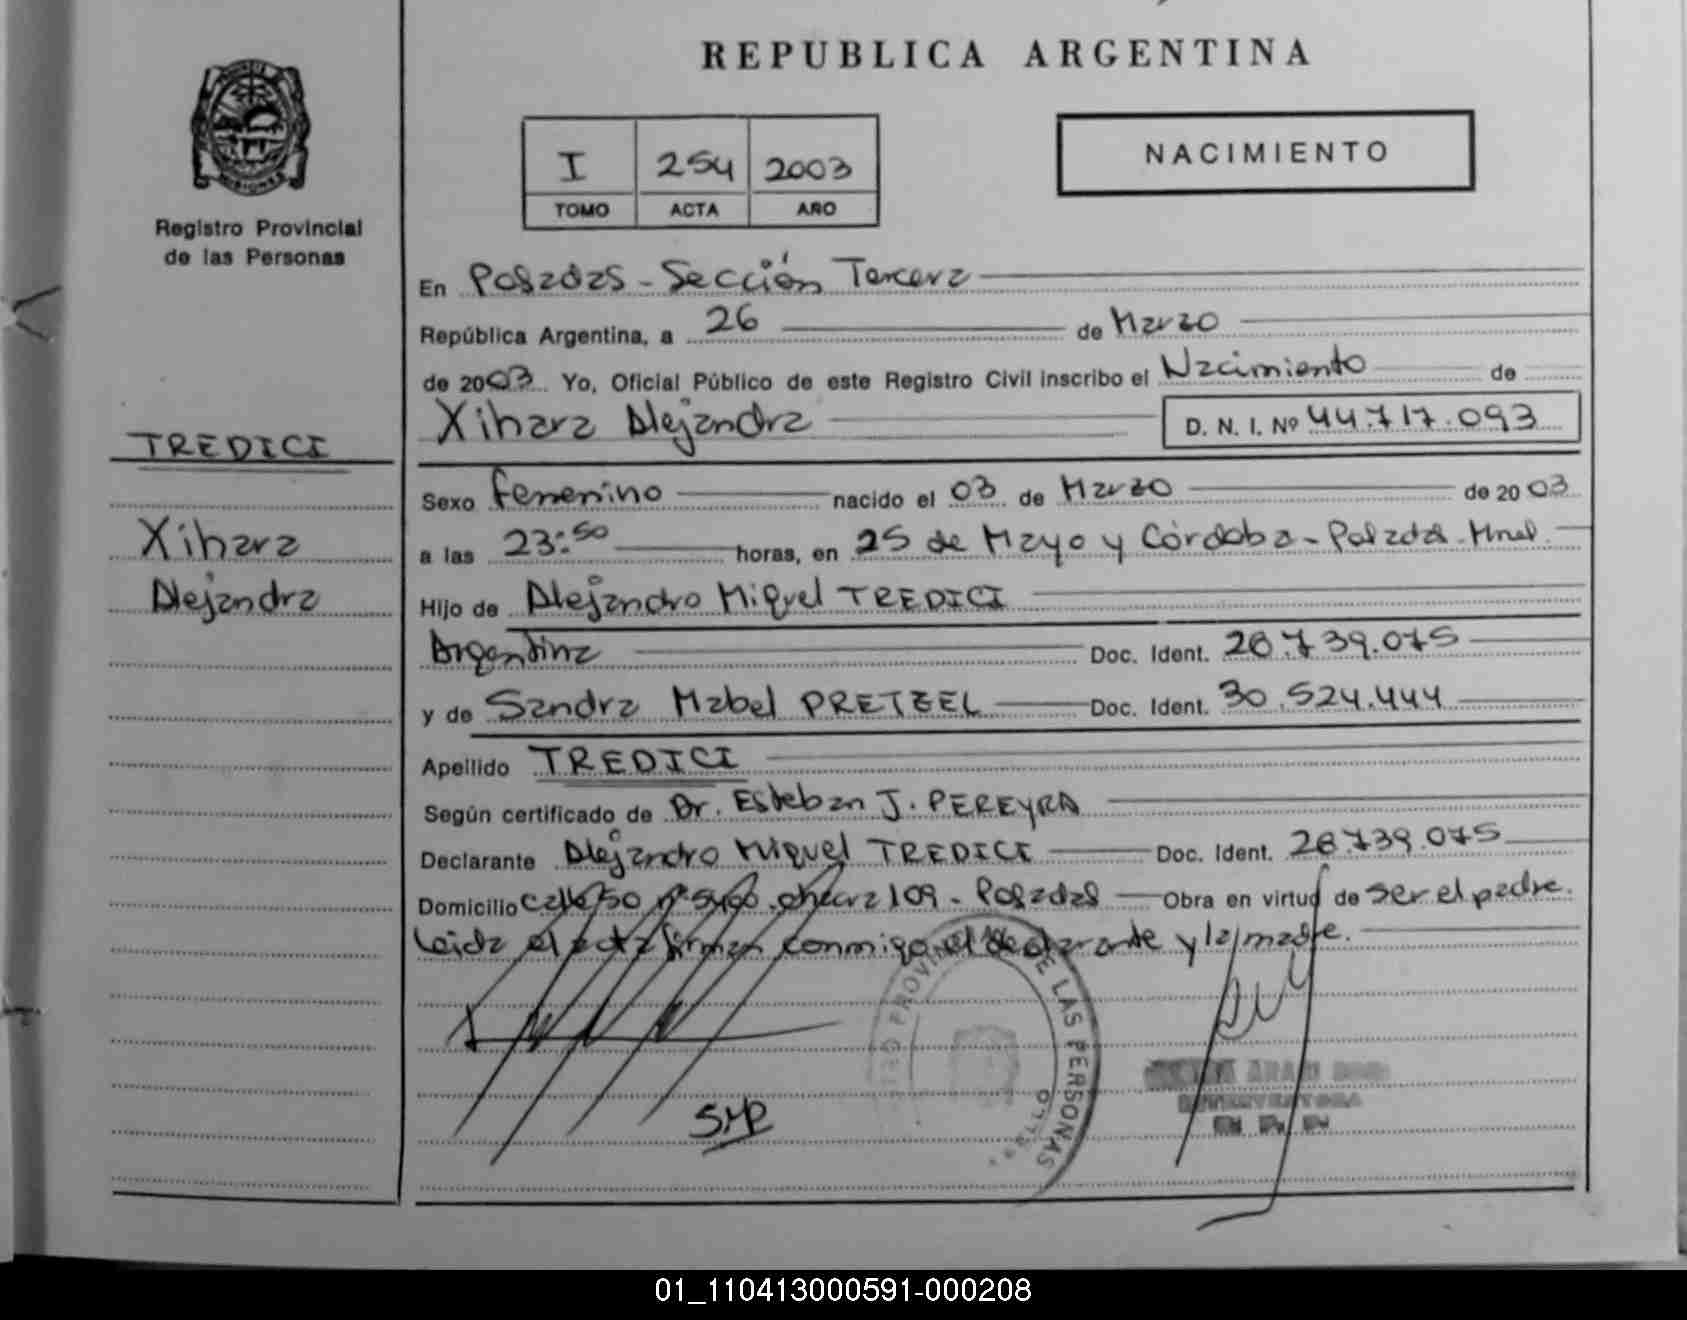 REPUBLICA ARGENTINA
NACIMIENTO
I 254 2003
TOMO ACTA AÑO
MISIONES
Registro Provincial
de las Personas
En Posadas - Sección Tercera
República Argentina, a 26 de Marzo
de 2003 Yo, Oficial Público de este Registro Civil inscribo el Nacimiento de
Xihara Alejandra D. N. I. Nº 44.717.093
TREDICI
Xihara
Alejandra
Sexo femenino nacido el 03 de Marzo de 2003
a las 23:50 horas, en 25 de Mayo y Córdoba - Posadas - Mnes.
Hijo de Alejandro Miguel TREDICI
Argentina Doc. Ident. 28.739.075
y de Sandra Mabel PRETZEL Doc. Ident. 30.524.444
Apellido TREDICI
Según certificado de Dr. Esteban J. PEREYRA
Declarante Alejandro Miguel TREDICI Doc. Ident. 28.739.075
Domicilio calle 50 nº chacra 109 - Posadas Obra en virtud de ser el padre.
Leída el acta firman conmigo el declarante y la madre.
DE LAS PERSONAS
SMP
01_110413000591-000208